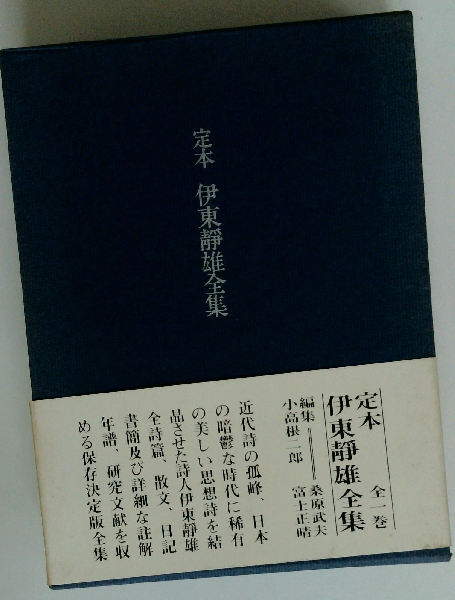 定本 伊東靜雄全集
定本
伊東靜雄全集 全一巻
編集 桑原武夫
小高根二郎 富士正晴
近代詩の孤峰、日本
の暗鬱な時代に稀有
の美しい思想詩を結
品させた詩人伊東靜雄
全詩篇、散文、日記
書簡及び詳細な註解
年譜、研究文献を収
める保存決定版全集